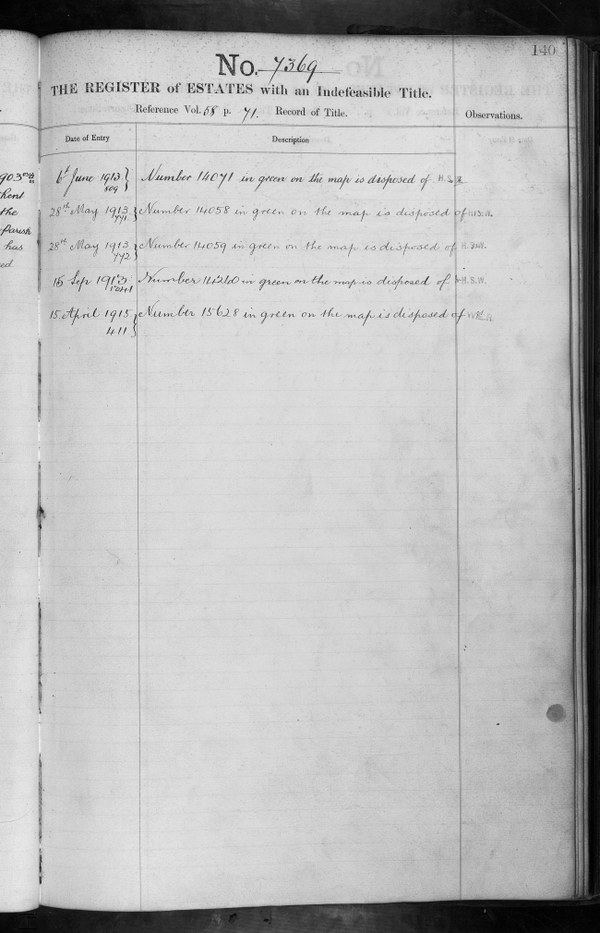 140
No. 7369
THE REGISTER of ESTATES with an Indefeasible Title.
Reference Vol. 58 p. 71. Record of Title.
Observations.
Date of Entry
Description
June 1913 } Number 14071 in green on the map is disposed of
28th May 1913 } Number 14058 in green on the map is disposed of
771
28th May 1913 } Number 14059 in green on the map is disposed of
772
15 Sep 1913 Number in green on the map is disposed of
15 April 1915 } Number 15628 in green on the map is disposed of
411
Kent
the
Parish
has